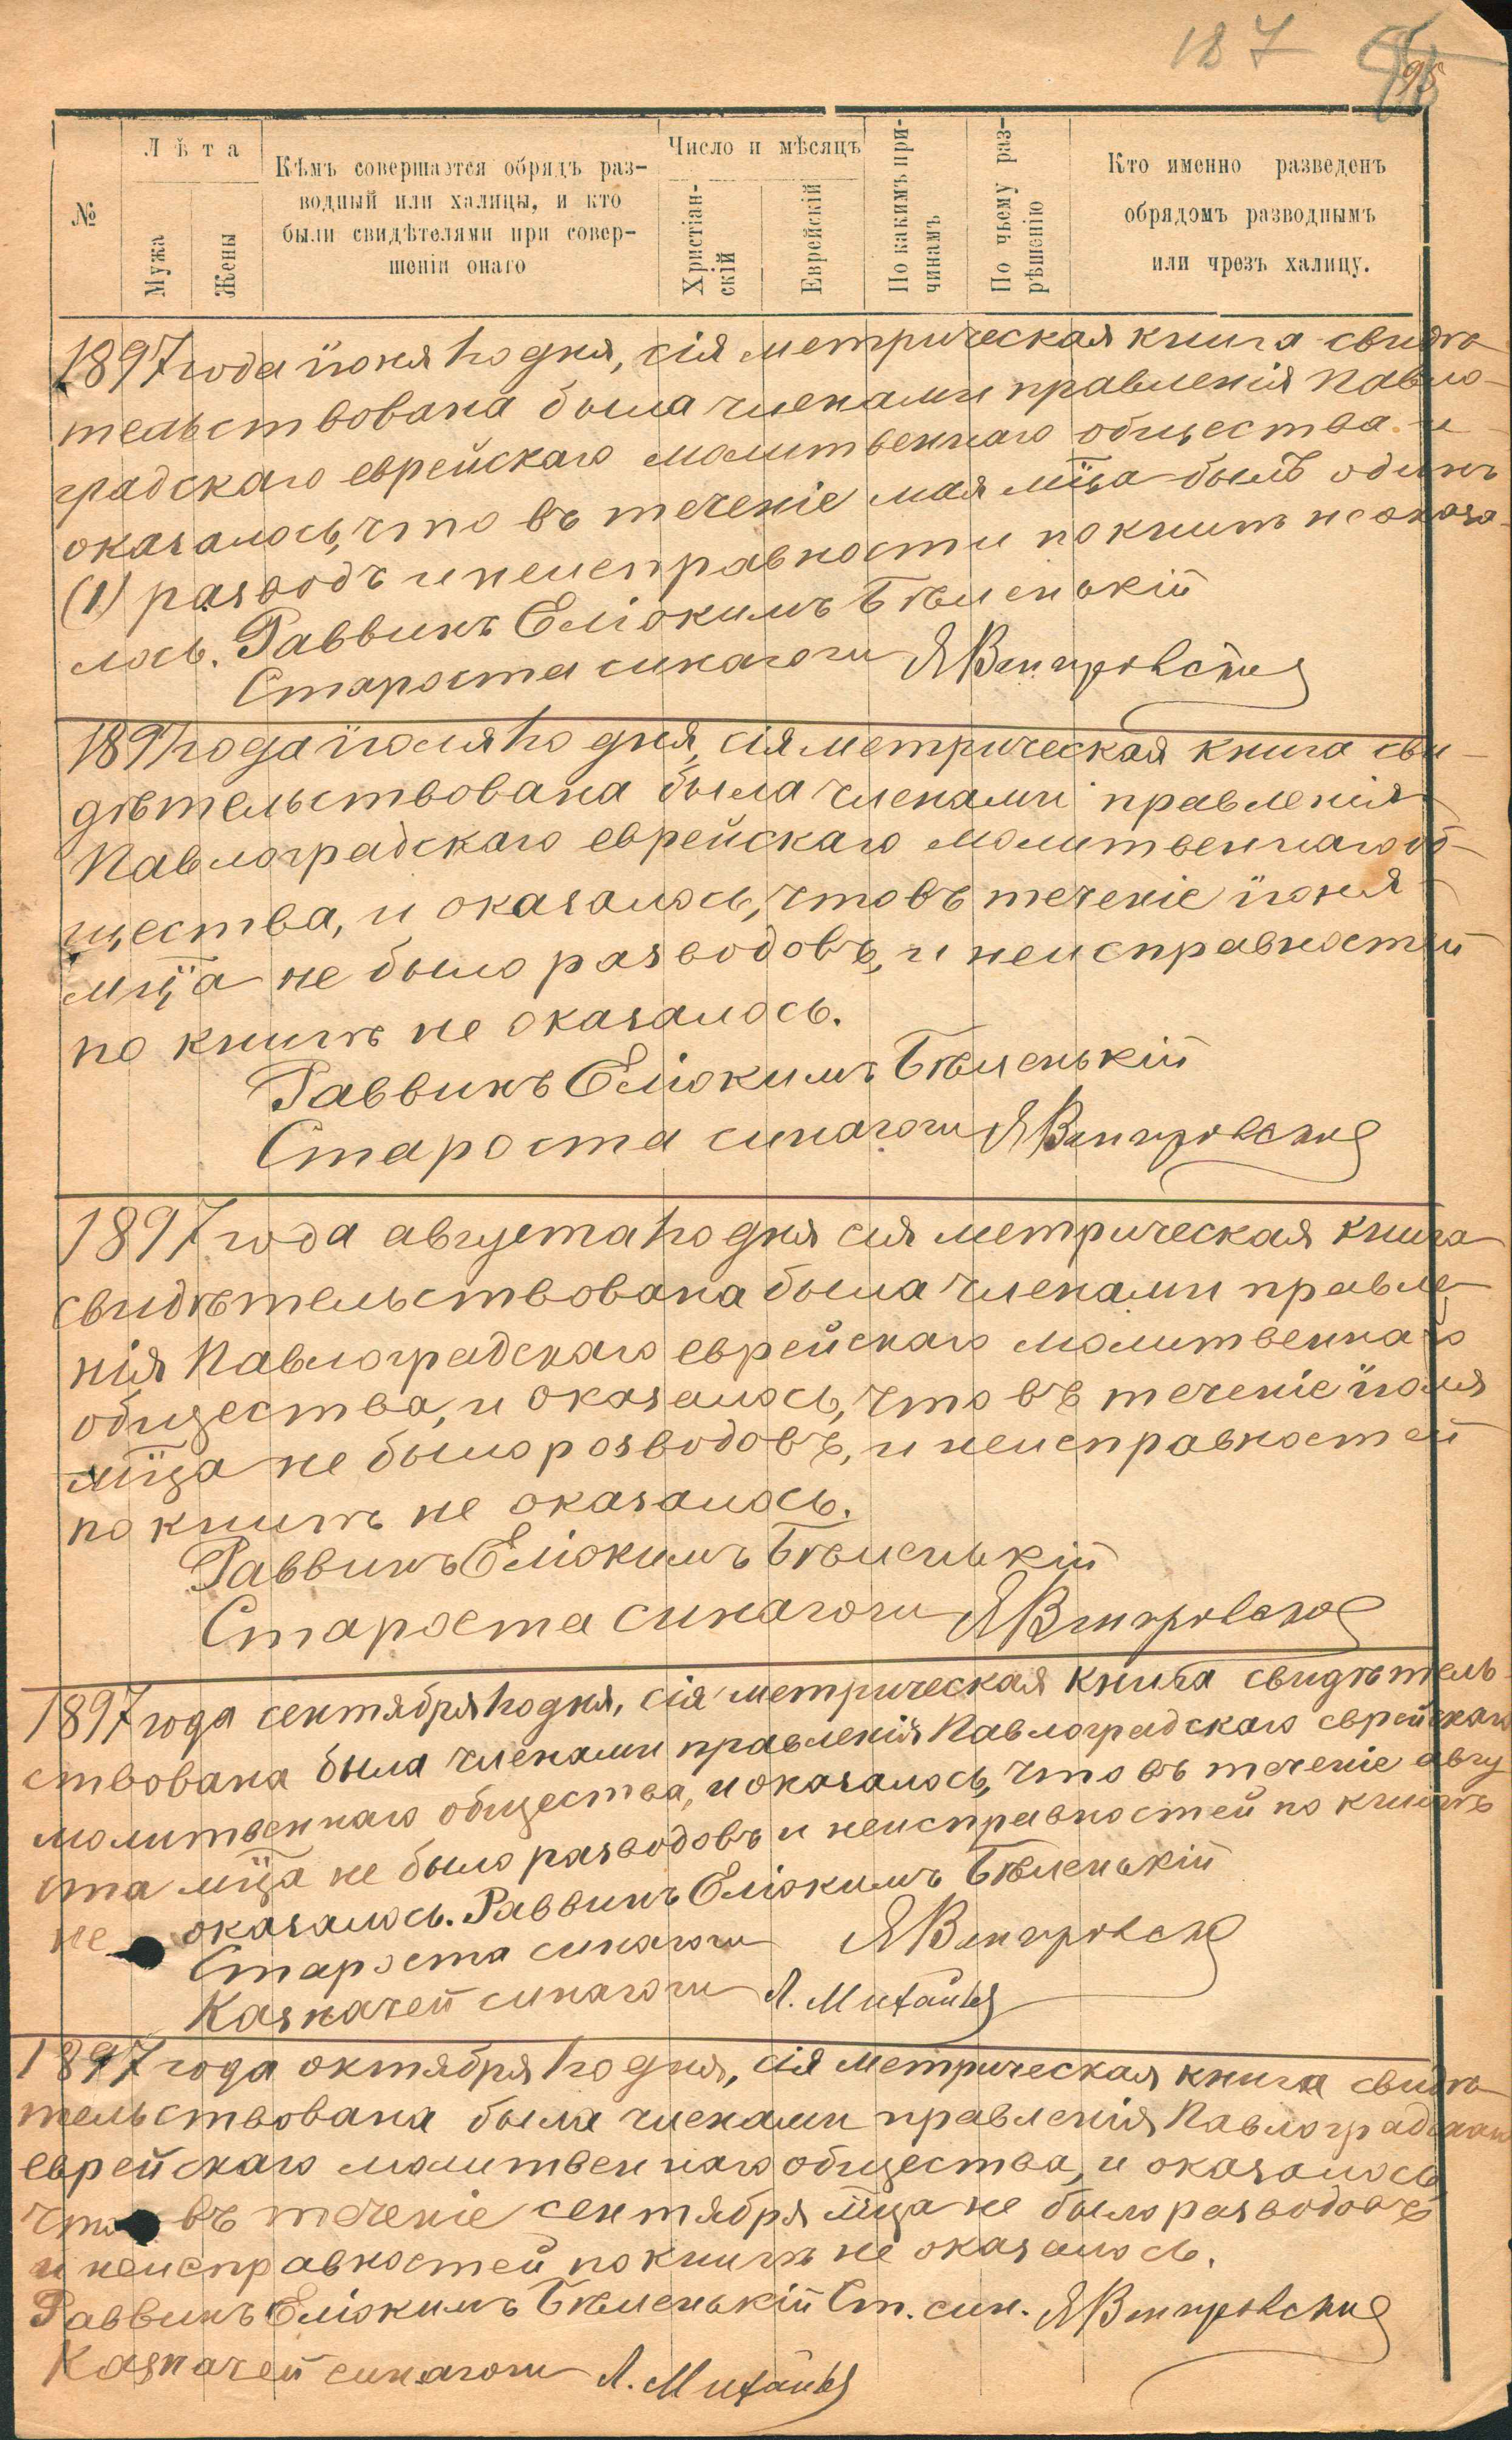 187
95
№
Лѣта
Мужа
Жены
Кѣмъ совершается обрядъ раз-
водный или халицы, и кто
были свидѣтелями при совер-
шеніи онаго
Число и мѣсяцъ
Христіан-
скій
Еврейскій
По какимъ при-
чинамъ
По чьему раз-
рѣшенію
Кто именно разведенъ
обрядомъ разводнымъ
или чрезъ халицу.
1897 года іюня 1го дня, сія метрическая книга свидѣ-
тельствована была членами правленія Павло-
градскаго еврейскаго молитвеннаго общества и
оказалось, что въ теченіе мая мца былъ одинъ
(1) разводъ и неисправности по книгѣ не оказа-
лось. Раввинъ Еліокимъ Бѣленькій
Староста синагоги Я Венгровскій
1897 года іюля 1го дня, сія метрическая книга сви-
дѣтельствована была членами правленія
Павлоградскаго еврейскаго молитвеннаго об-
щества, и оказалось, что въ теченіе іюня
мца не было разводовъ, и неисправностей
по книгѣ не оказалось.
Раввинъ Еліокимъ Бѣленькій
Староста синагоги Я Венгровскій
1897 года августа 1го дня сія метрическая книга
свидѣтельствована была членами правле-
нія Павлоградскаго еврейскаго молитвеннаго
общества, и оказалось, что въ теченіе іюля
мца не было розводовъ, и неисправностей
по книгѣ не оказалось.
Раввинъ Еліокимъ Бѣленькій
Староста синагоги Я Венгровскій
1897 года сентября 1го дня, сія метрическая книга свидѣтель-
ствована была членами правленія Павлоградскаго еврейскаго
молитвеннаго общества, и оказалось, что въ теченіе авгу
ста мца не было разводовъ и неисправностей по книгѣ
не оказалось. Раввинъ Еліокимъ Бѣленькій
Староста синагоги Я Венгровскій
Казначей синагоги Л.
1897 года октября 1го дня, сія метрическая книга свидѣ-
тельствована была членами правленія Павлоградскаго
еврейскаго молитвеннаго общества, и оказалось
что въ теченіе сентября мца не было разводовъ
и неисправностей по книгѣ не оказалось.
Раввинъ Еліокимъ Бѣленькій Ст. син. Я Венгровскій
Казначей синагоги Л.